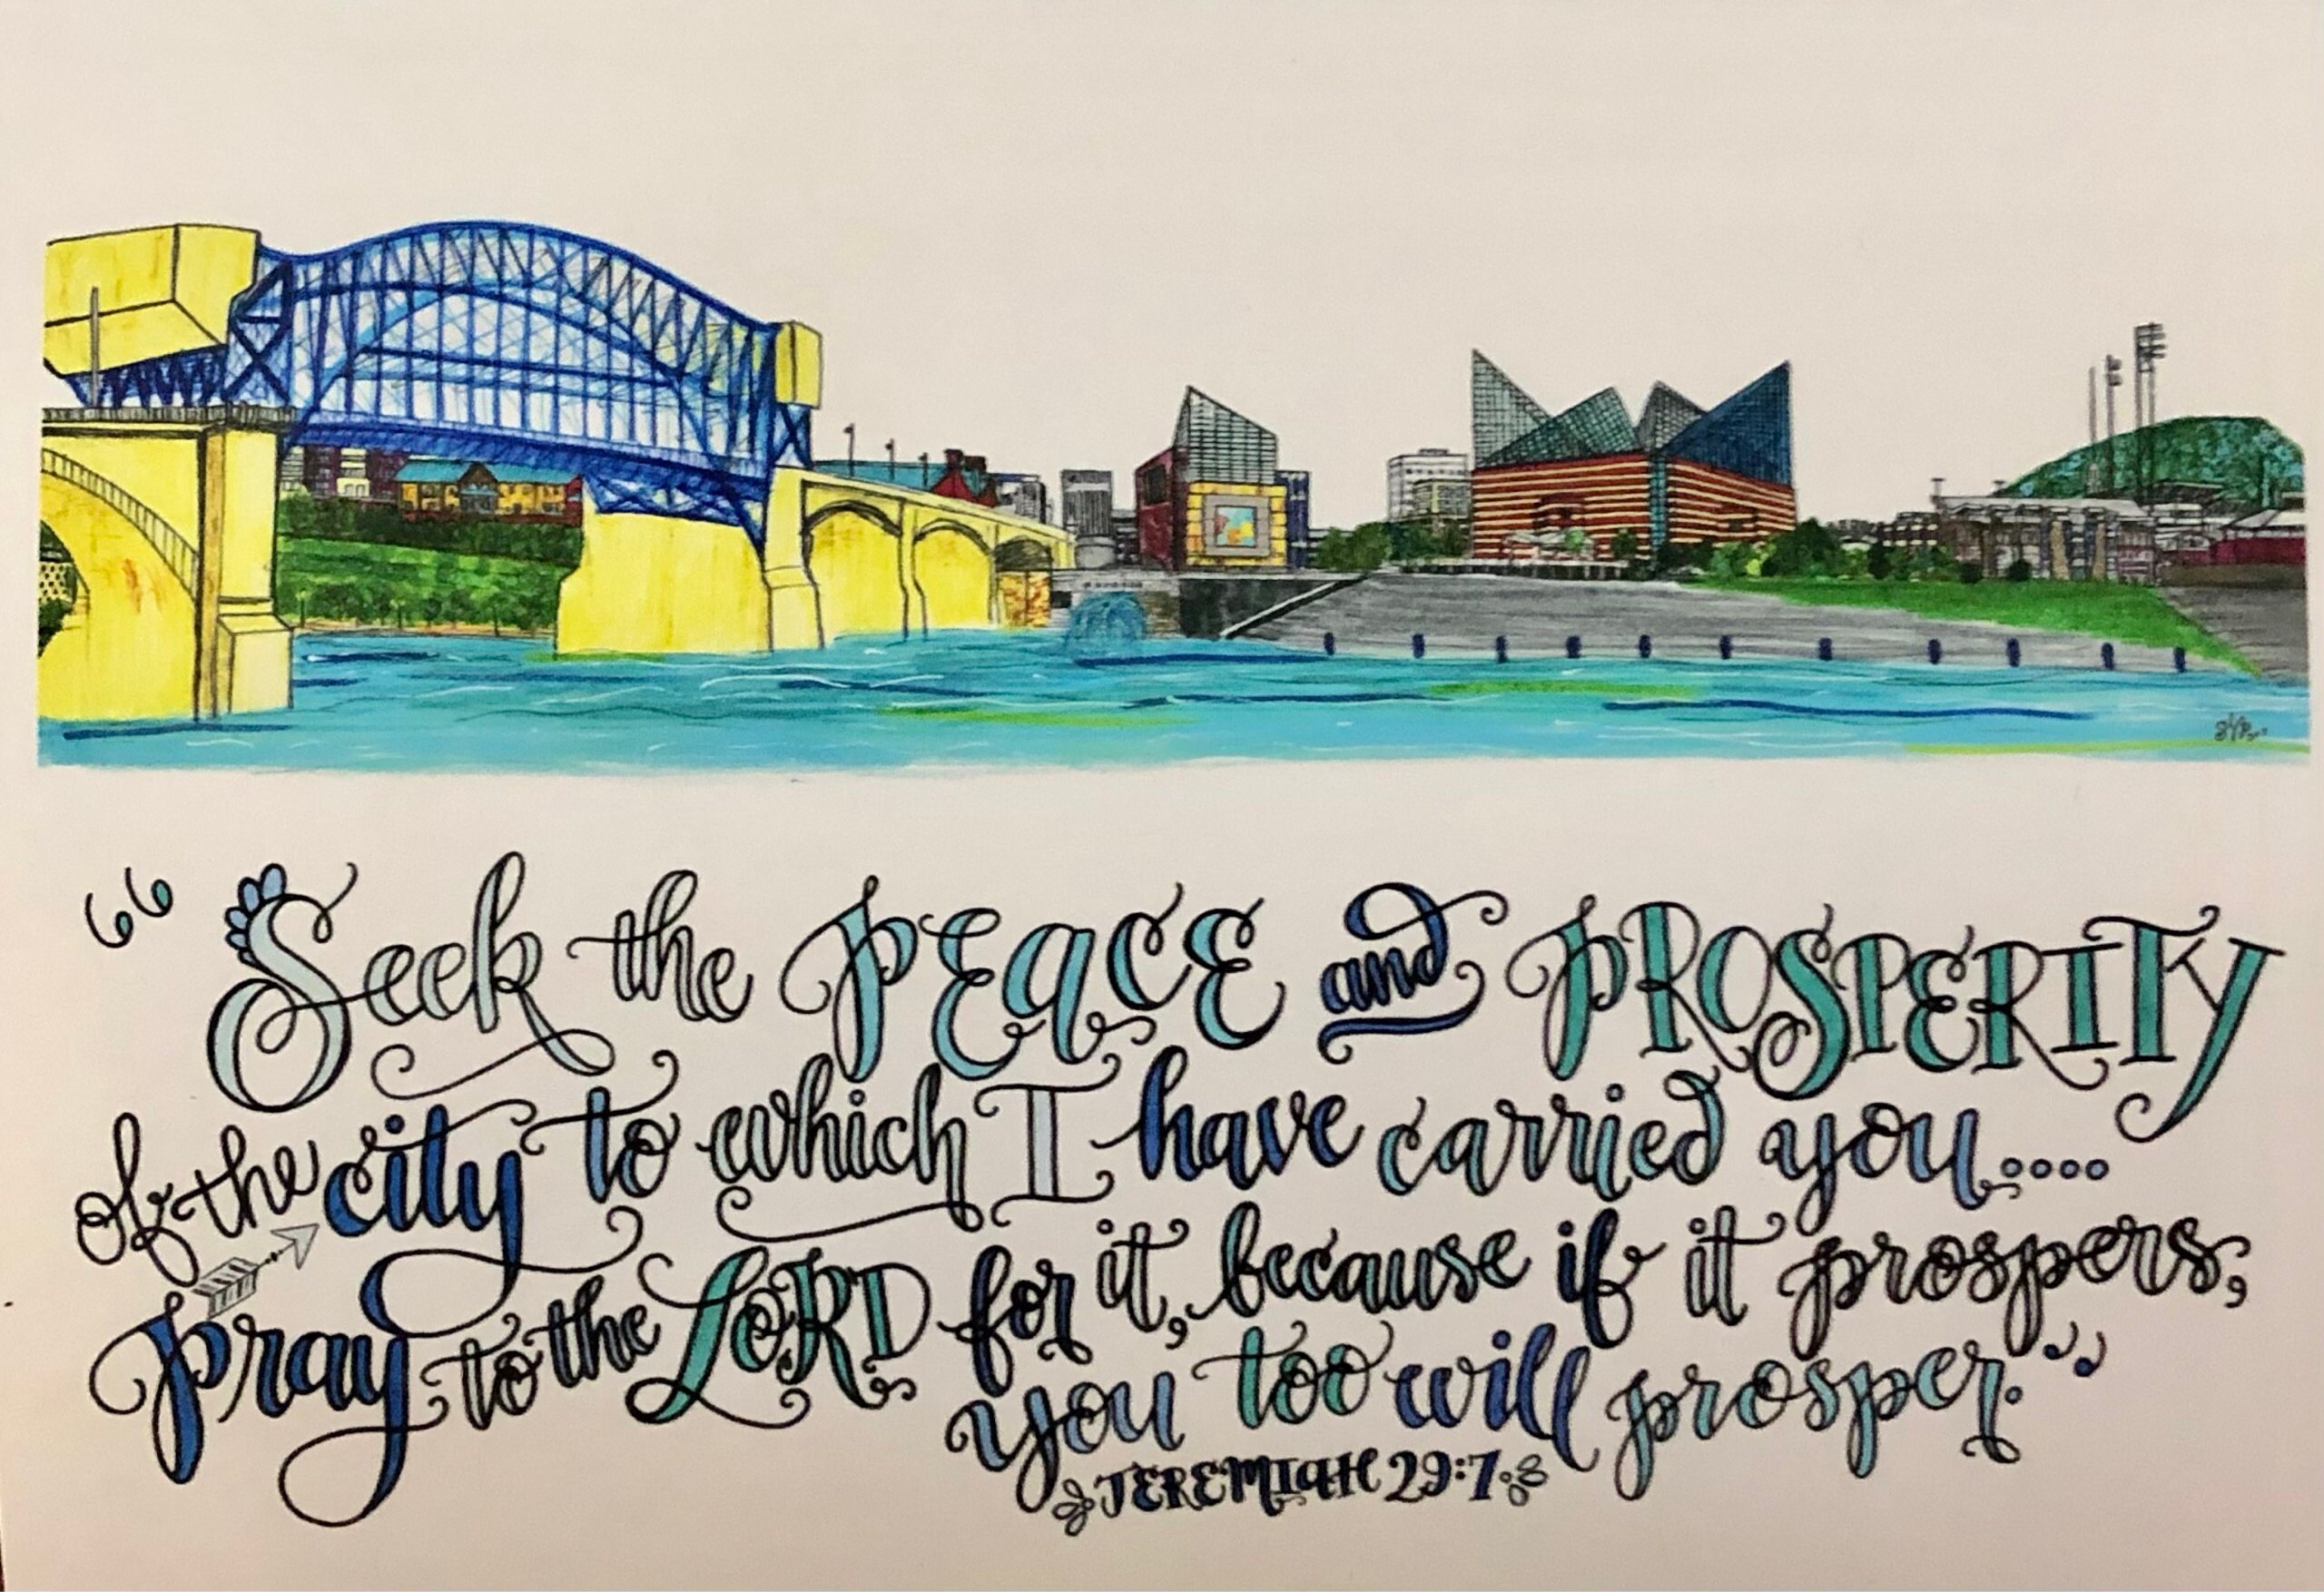 “Seek the PEACE and PROSPERITY
of the city to which I have carried you....
pray to the LORD for it, because if it prospers,
you too will prosper.”
JEREMIAH 29:7